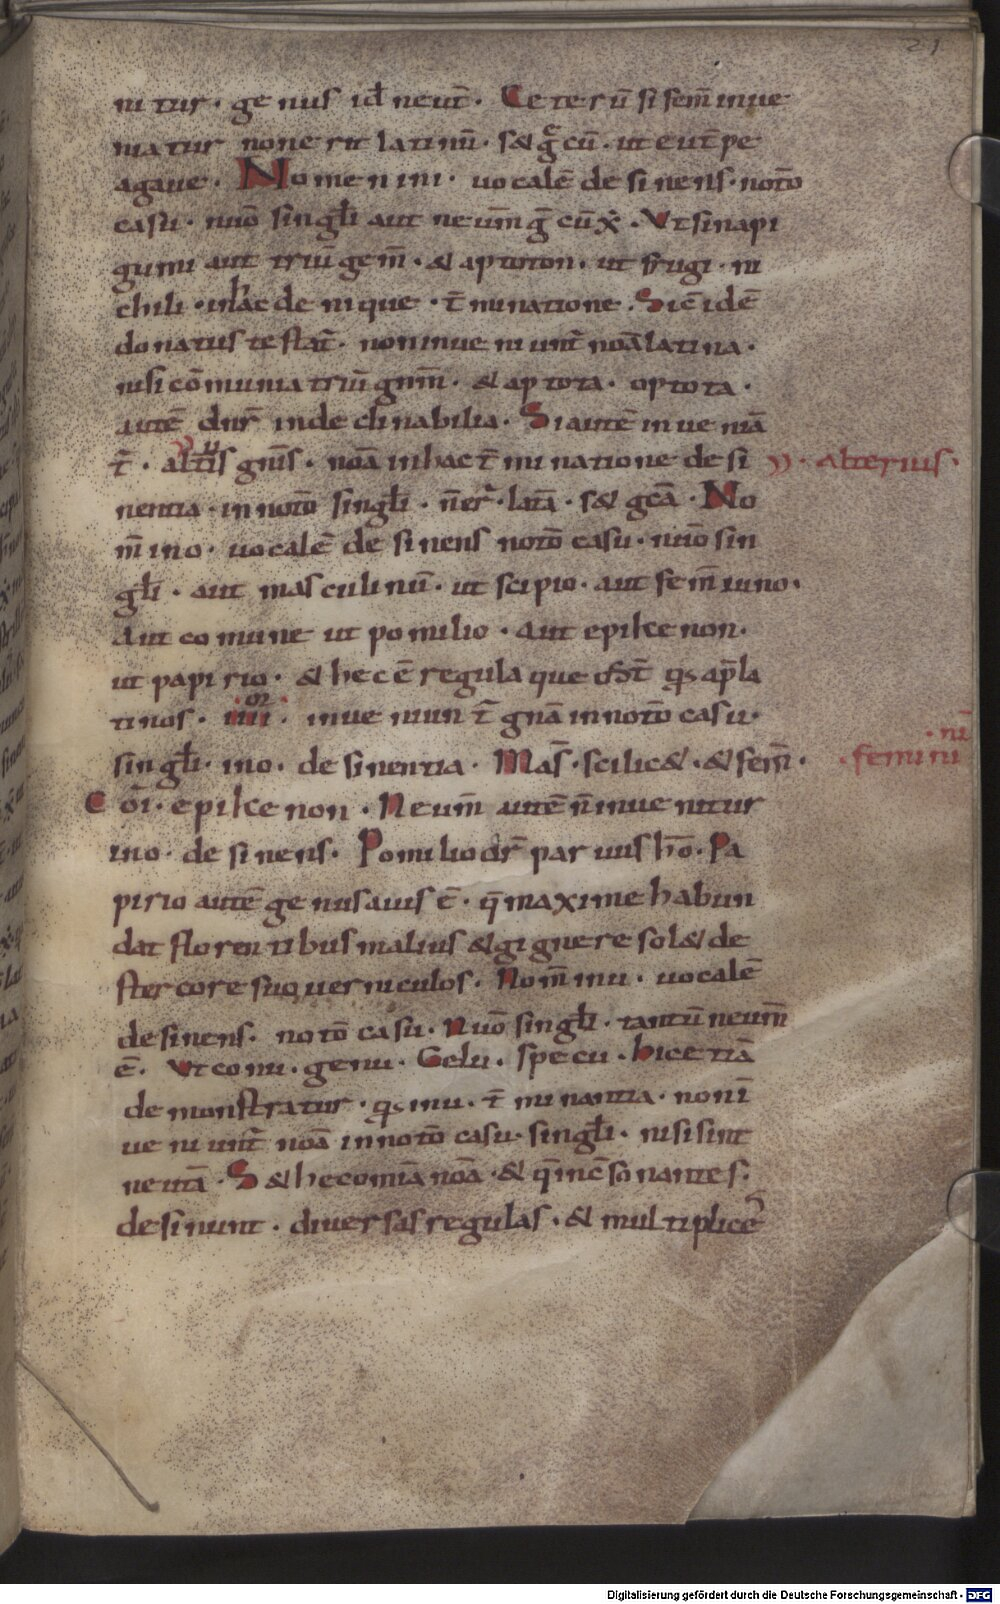 21
nitur · genus id̄ neut̄ · Ceterū si fem̄ inue
niatur non erit latinū · s& grecū · ut eut̄pe
agaue · Nomen in i · uocalē desinens · notō
casu · nuō singłi aut neum̄ g̅cū · Vt sinapi
gumi aut triū gem̄ · & aptoton · ut frugi · ni
chili · in hac denique · t̄minatione · Sic idē
donatus testat̄ · non inueniunt̄ noā latina ·
nisi cōmunia triū gnm̄ · & aptota · aptota ·
autē dn̄r indeclinabilia · Si autē inueniā
t̄ · alt̄is gnīs · noā in hac t̄minatione desi
nentia · in notō singłi · n̄ er̄ · latā · s& gcā · No
m̄ in o · uocalē desinens notō casu · nuō sin
głi · aut masculinū · ut scipio · aut fem̄ iuno ·
Aut comune ut pomilio · aut epikenon ·
ut papirio · & hec ē regula que ost̄ qs ap̄ la
tinos · iiii or · inueniunt̄ gnā in notō casu ·
singłi · in o · desinentia · Mas̄ · scilic& · & fem̄ ·
Cōi · epikenon · Neum̄ autē n̄ inuenitur
in o · desinens · Pomilio dr̄ paruus hō · Pa
pirio autē genus auis ē · q̄ maxime habun
dat florentibus maluis & gignere sol& de
stercore suo uerniculos · Nom̄ in u · uocalē
desinens · notō casu · Nuō singłi · tantū neum̄
ē · Vt conu · genu · Gelu · specu · hic etiā
demonstratur · qs in u · t̄minantia · non ī
ueniunt̄ noā in notō casu · singłi · nisi sint
neutā · S& hec omīa noā · & q̄ in c̄sonantes ·
desinunt · diuersas regulas · & multiplice
· alterius ·
· ni
· femini
Digitalisierung gefördert durch die Deutsche Forschungsgemeinschaft - DFG